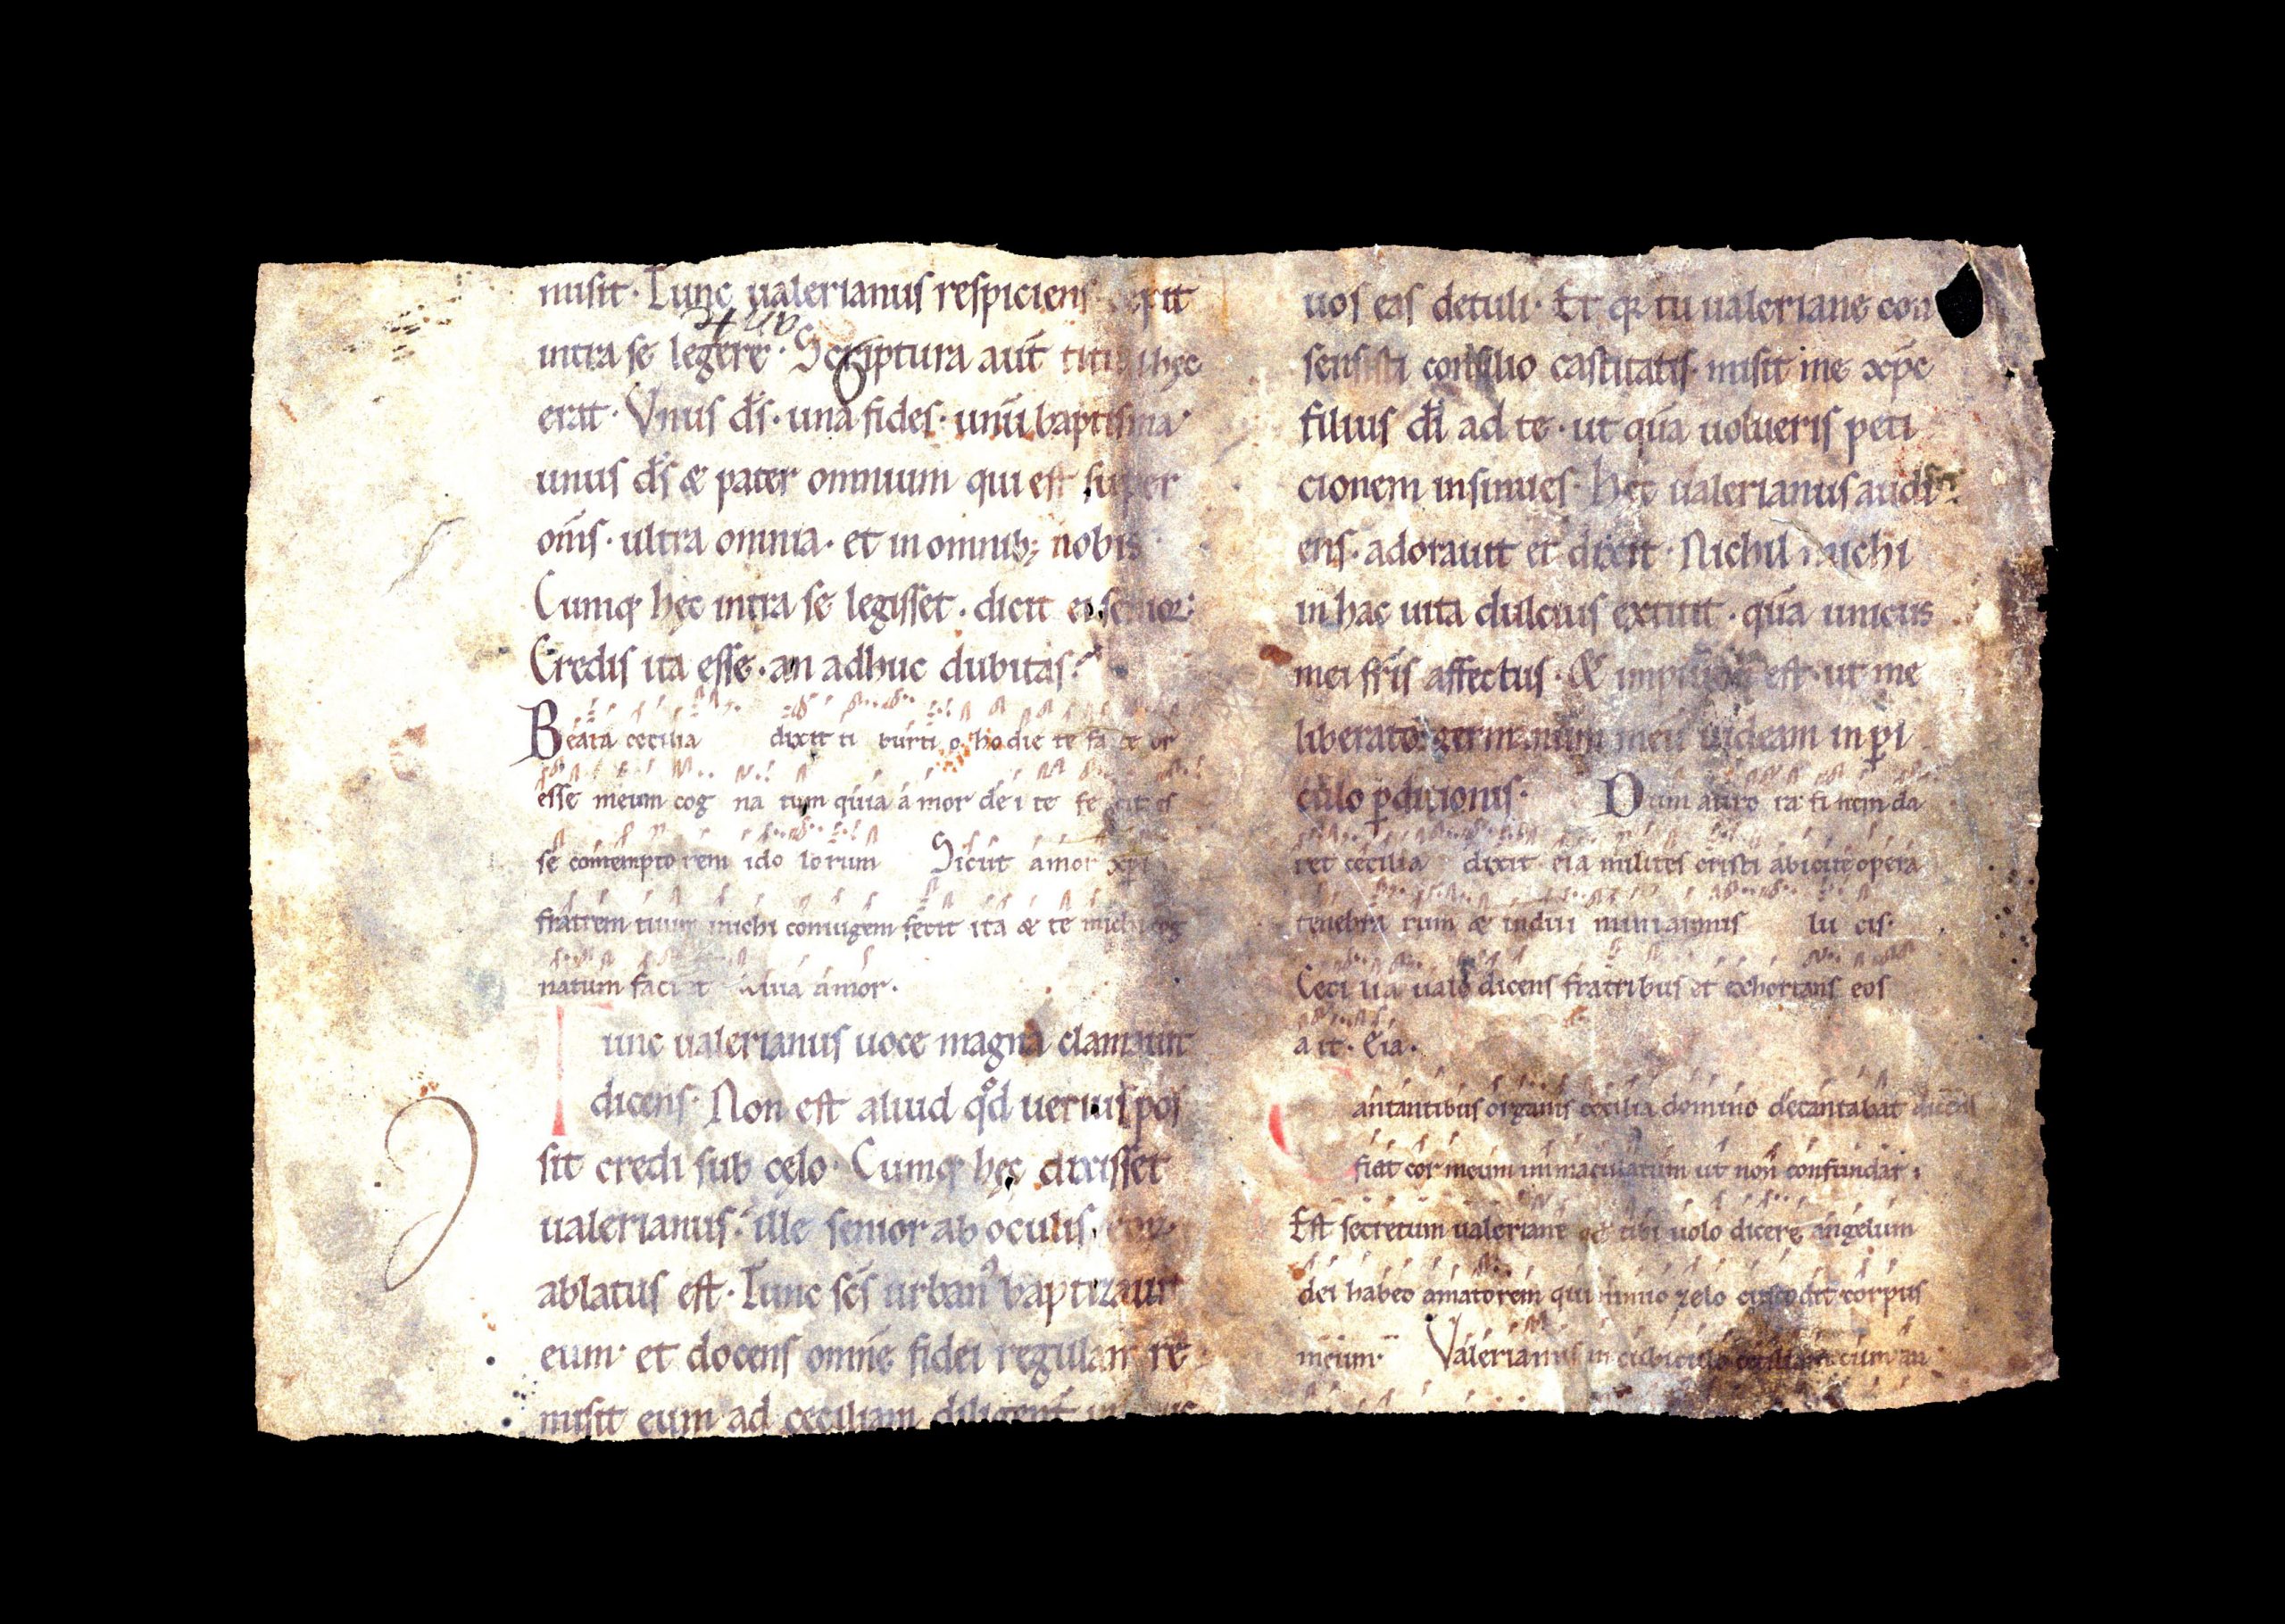 misit · Tunc ualerianus respiciens cepit
intra se legere · Scriptura aut̄ tituli hęc
erat · Vnus ds̄ · una fides · unū baptisma ·
unus ds̄ & pater omnium qui est super
om̄s · ultra omnia · et in omnib; nobis
Cumq; hęc intra se legisset · dicit ei senior:
Credis ita esse · an adhuc dubitas ·
Beata cecilia dixit ti burti o hodie te fa te or
esse meum cog na tum quia a mor de i te fe cit es
se contempto rem ido lorum Sicut amor xp̄i
fratrem tuum michi coniugem fecit ita & te michi cog
natum faciet Quia amor ·
Tunc ualerianus uoce magna clamauit
dicens · Non est aliud qd̊ uerius pos
sit credi sub cęlo · Cumq; hęc dixisset
ualerianus · ille senior ab oculis eor
ablatus est · Tunc scs̄ urban⁹ baptizauit
eum · et docens omnē fidei regulam re
misit eum ad ceciliam diligent̄
uos eas detuli · Et q; tu ualeriane con
sensisti consilio castitatis · misit me xp̄c
filius dī ad te · ut quā uolueris peti
cionem insinues · hęc ualerianus audi
ens · adorauit et dixit · Nichil michi
in hac uita dulcius extitit · quā unicus
mei fr̄is affectus · & impium est · ut me
liberato germanum meū uideam in ꝑi
culo ꝑdicionis · Dum auro ra fi nem da
ret cecilia dixit eia milites cristi abicite opera
tenebra rum & indui mini armis lu cis ·
Ceci lia uale dicens fratribus et exhortans eos
a it · Eia ·
Cantantibus organis cecilia domino decantabat dicens
fiat cor meum immaculatum ut non confundar ·
Est secretum ualeriane qd tibi uolo dicere angelum
dei habeo amatorem qui nimio zelo custodit corpus
meum · Valerianus in cubiculo ceciliam cum an